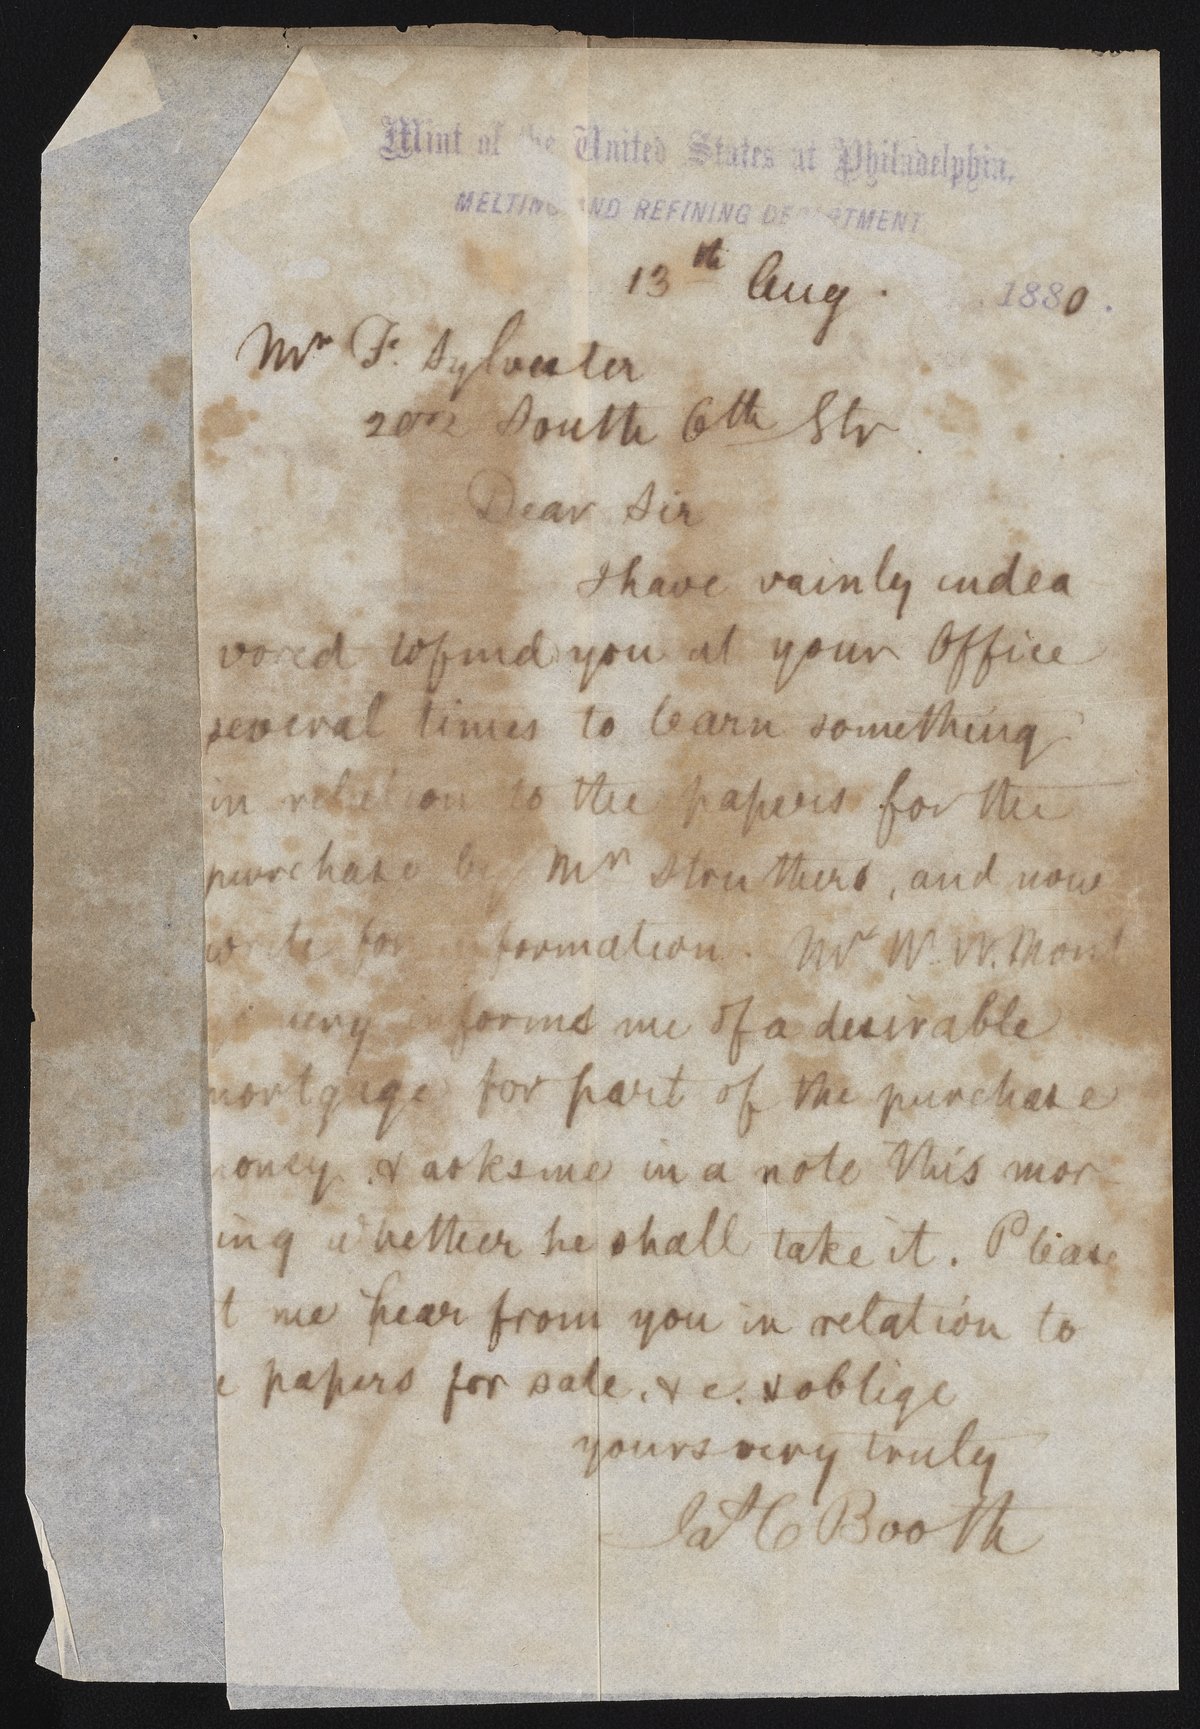 Mint of the United States at Philadelphia,
MELTING AND REFINING DEPARTMENT
13th Aug. 1880.
Mr F. Sylvester
South 6th Str
Dear Sir
I have vainly indea
vored to find you at your Office
several times to learn something
in relation to the papers for the
purchase by Mr Struthers, and now
write for information. Mr W. W. Mont
gomery informs me of a desirable
mortgage for part of the purchase
money & asks me in a note this mor-
ing whether he shall take it. Please
t me hear from you in relation to
e papers for sale, & c. & oblige
yours very truly
Jas C Booth